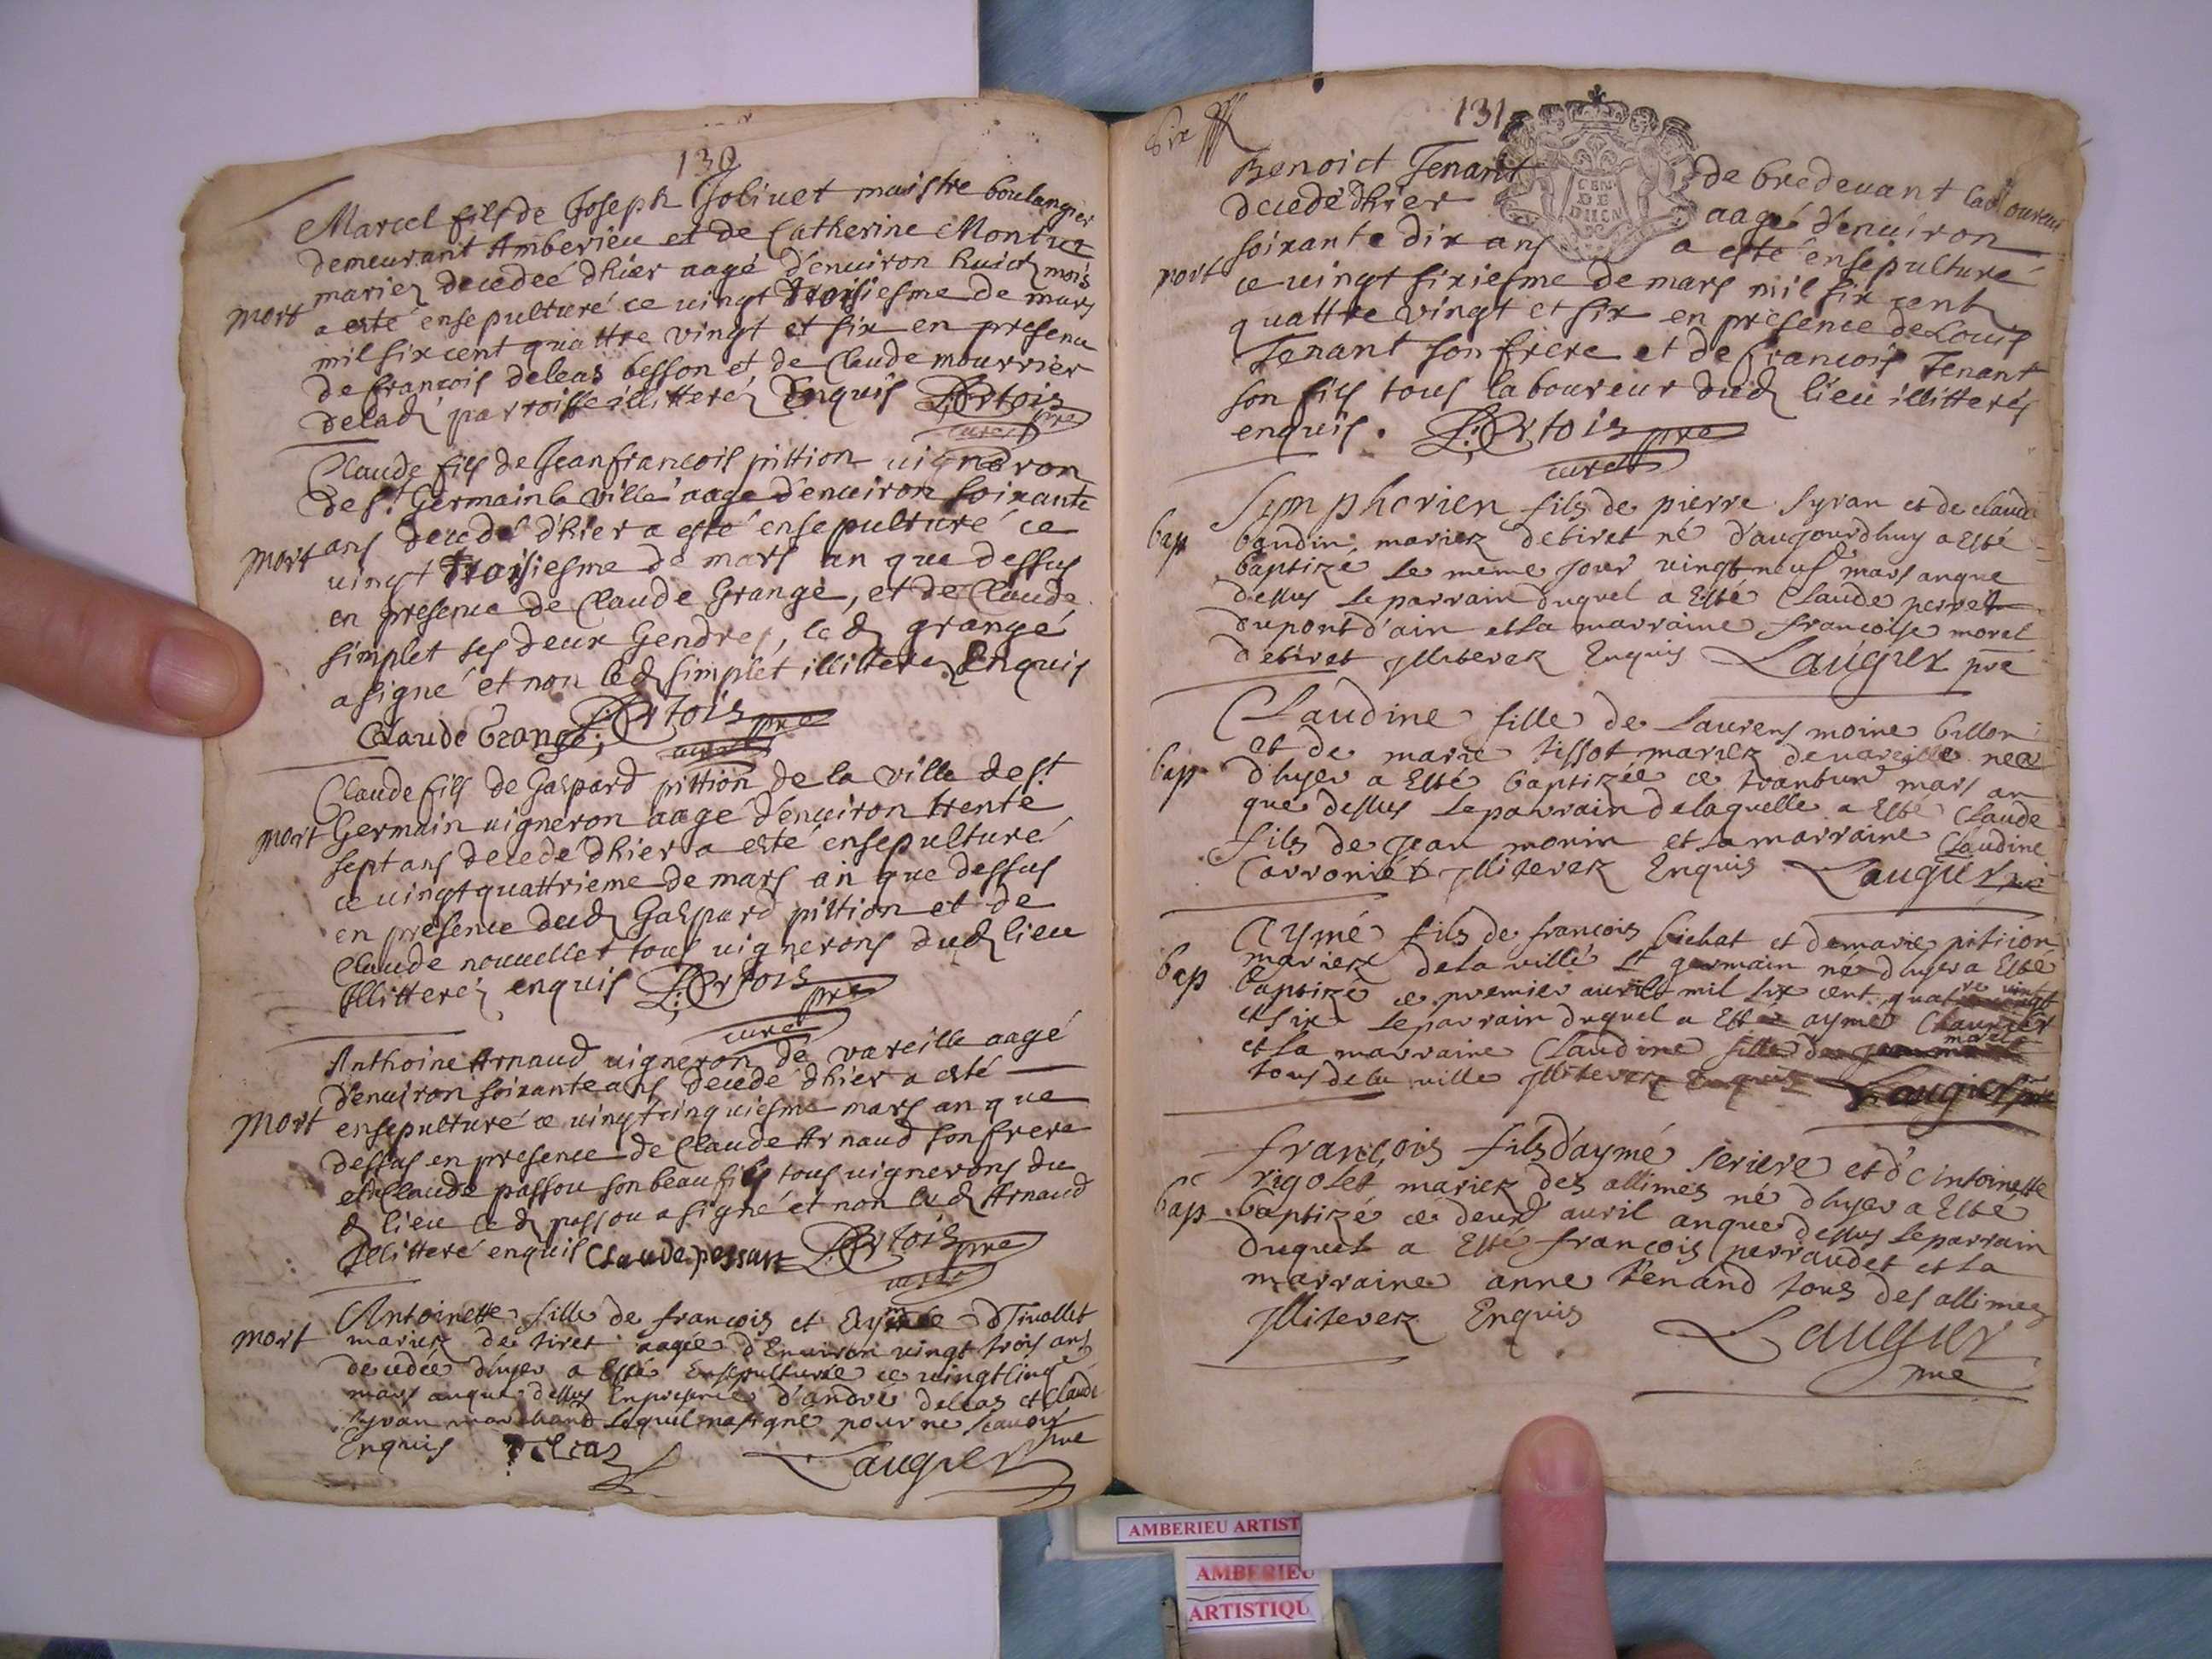 130
Marcel fils de Joseph Jolivet maistre boulanger
demeurant Amberieu et de Catherine Montuet
mariez decedeé dhier aagé d'enuiron huict mois
mort a esté ensepulturé ce uingt troisiesme de mars
mil six cent quattre vingt et six en presence
de françois deleas besson et de Claude mourrier
delad parroisse illitteréz enquis Bertois pre
curé
Claude fils de Jean françois pittion uigneron
de St Germain la ville aage d'enuiron soixante
mort ans decedé d'hier a esté ensepulturé ce
uingt troisiesme de mars an que dessus
en presence de Claude Grangé, et de Claude
simplet ses deux Gendres, led grangé
a signé et non led simplet illitteréz Enquis
Claude Grange, Bertois pre
curé
Claude fils de Gaspard pittion de la ville de St
mort Germain uigneron aagé d'enuiron trente
sept ans decedé dhier a esté ensepulturé
ce uingt quattrieme de mars an que dessus
en presence dud Gaspard pittion et de
Claude nouuellet tous uignerons dud lieu
Illitteréz enquis Bertois pre
curé
Anthoine Arnaud uigneron de vareille aagé
d'enuiron soixante ans decedé dhier a esté
mort ensepulturé ce uingt cinquiesme mars an que
dessus en presence de Claude Arnaud son frere
et Claude passou son beau fils tous uignerons du
d lieu led passou a signé et non led Arnaud
Illitteré enquis Claude passau Bertois pre
curé
Antoinette fille de françois et Tiuollet
mort mariez de tiret aagée d'Enuiron vingt trois ans
decedée d'hyer a Esté Ensepulturée ce uingt cinq
mars anque dessus Enpresence d'andré deleas et Claude
Syran marchand lequel na signé pour ne scauoir
Enquis Deleas Laugier pre
Six 131
Benoict Tenant de bredeuant laboureur
decedé dhier aagé d'enuiron
soixante dix ans a esté ensepulturé
mort ce uingt sixiesme de mars mil six cent
quattre vingt et six en presence de Louis
Tenant son frere et de françois Tenant
son fils tous laboureur dud lieu illitterés
enquis. Bertois pre
curé
Symphorien fils de pierre Syran et de claude
bap baudin, mariez detiret né d'aujourdhuy a Esté
baptizé le même jour vingt neuf mars anque
dessus le parrain duquel a Esté Claude perret
du pont d'ain et la marraine françoise morel
detiret Illiterez Enquis Laugier pre
Claudine fille de Laurens moine billon
et de marie tissot mariez de uareille née
bap d'hyer a Esté baptizée ce trantun mars an
que dessus le parrain de laquelle a Esté Claude
fils de Jean monin et la marraine Claudine
Carronier Illiterez Enquis Laugier pre
Aymé fils de françois bichat et de marie pition
mariez de la ville St germain né d'hyer a Esté
bap baptizé ce premier auril mil six cent quatre vint
et six le parrain duquel a Esté aymé
et la marraine Claudine fille de morel
tous de la ville Illiterez Enquis Laugier pre
françois fils d'aymé seriere et d'Antoinette
rigolet mariez des allimes né d'hyer a Esté
bap baptizé ce deux auril anque dessus le parrain
duquel a Esté françois perraudet et la
marraine anne tenand tous des allimes
Illiterez Enquis Laugier
pre
CEN
DE
AMBERIEU ARTIST
AMBERIEU
ARTISTIQU